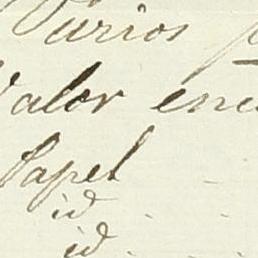 Varios p
Valor en
Papel
id
id